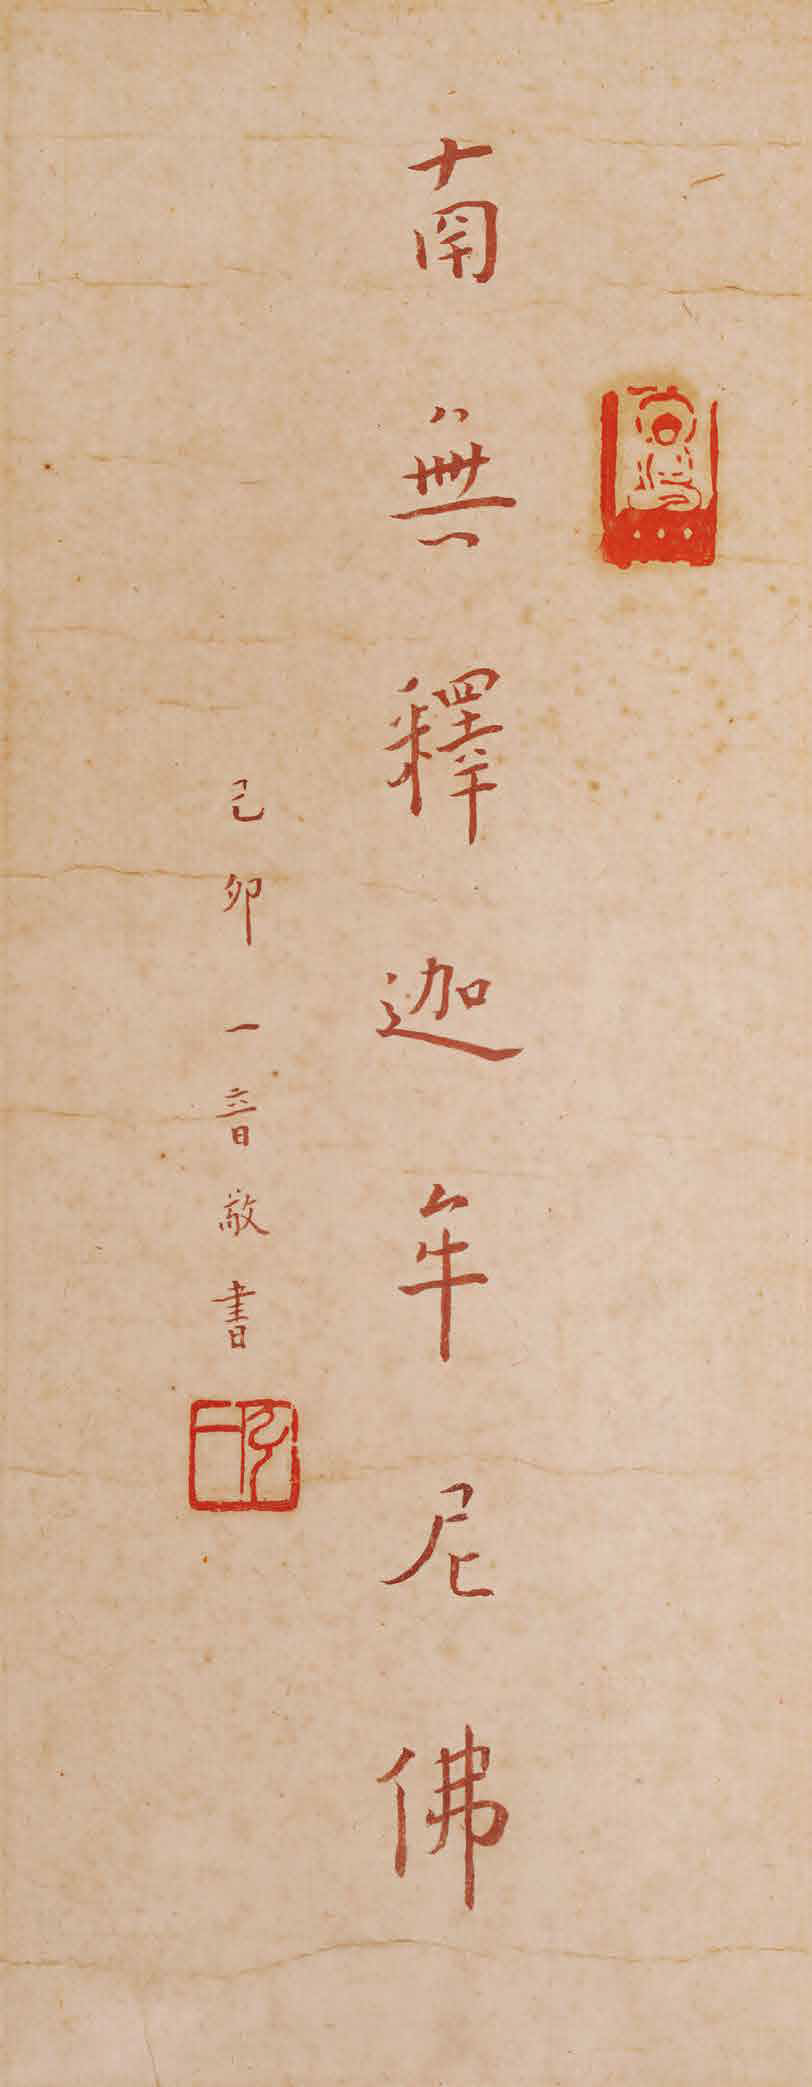 南無釋迦牟尼佛
己卯一音敬書
弘一